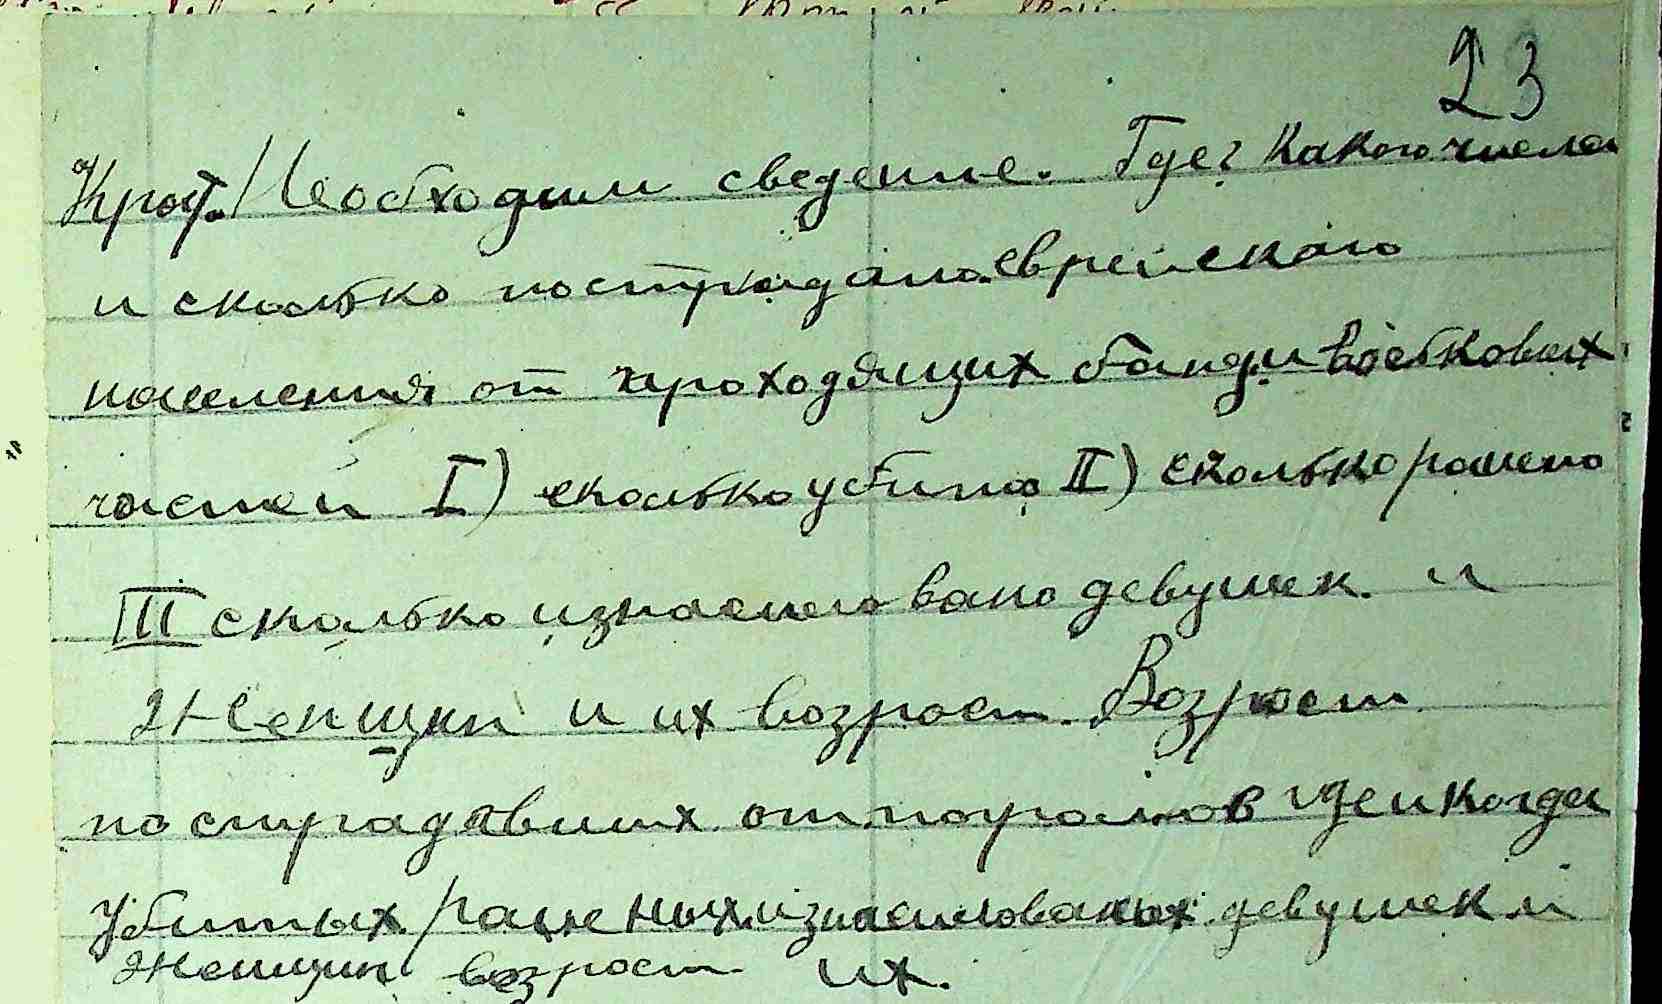 23
Необходим сведение. Где? Какого числа
и сколько пострадало еврейского
населения от проходящих банд и войсковых
частей I) сколько убито II) сколько ранено
III сколько изнасиловано девушек и
Женщин и их возраст. Возраст
пострадавших от погромов где и когда
Убитых / раненых изнасилованых девушек и
Женщин возраст их.